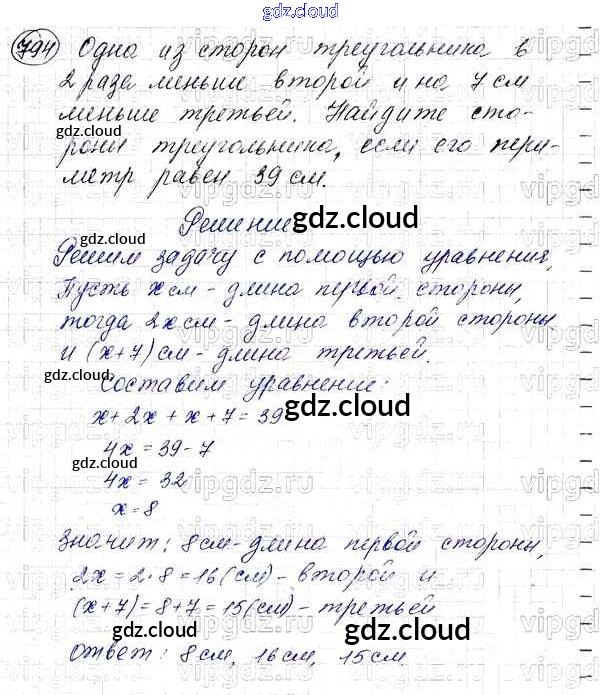 gdz.cloud
794 Одна из сторон треугольника в
2 раза меньше второй и на 7 см
меньше третьей. Найдите сто-
роны треугольника, если его пери-
метр равен 39 см.
Решение
Решим задачу с помощью уравнения,
Пусть x см - длина первой стороны,
тогда 2x см - длина второй стороны
и (x+7) см - длина третьей.
Составим уравнение:
x + 2x + x + 7 = 39
4x = 39 - 7
4x = 32
x = 8
Значит: 8 см - длина первой стороны,
2x = 2·8 = 16 (см) - второй и
(x+7) = 8+7 = 15 (см) - третьей
Ответ: 8 см, 16 см, 15 см